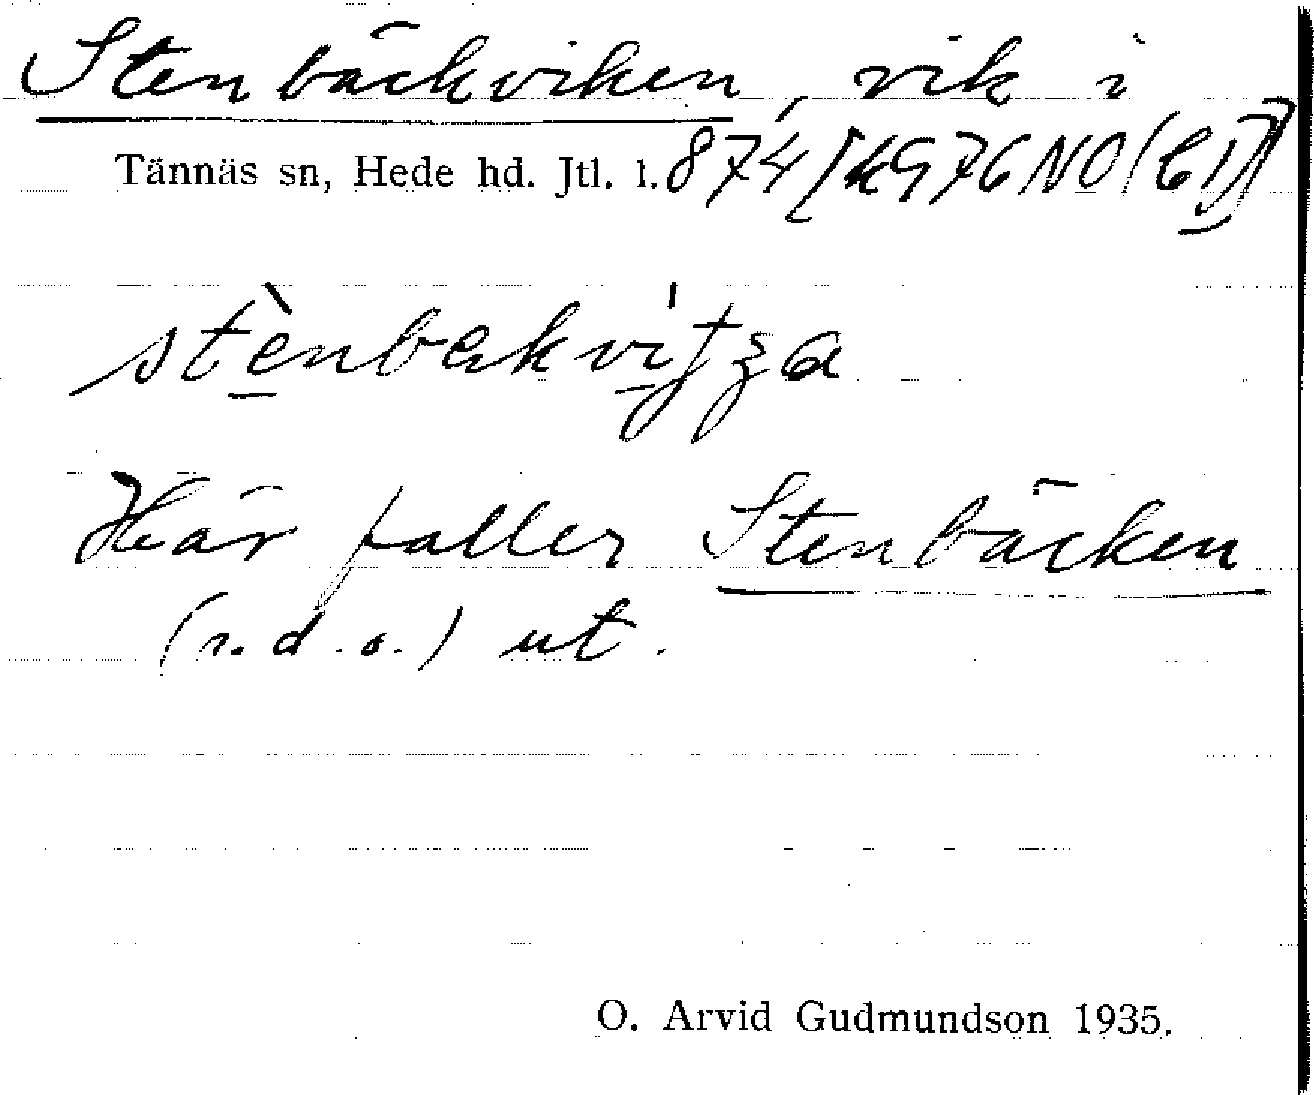 Stenbäckviken, vik i
Tännäs sn, Hede hd. Jtl. l. 874 [KG 76 NO (C1)]
stènbekvítza
Här faller Stenbäcken
(s.d.o.) ut.
O. Arvid Gudmundson 1935.